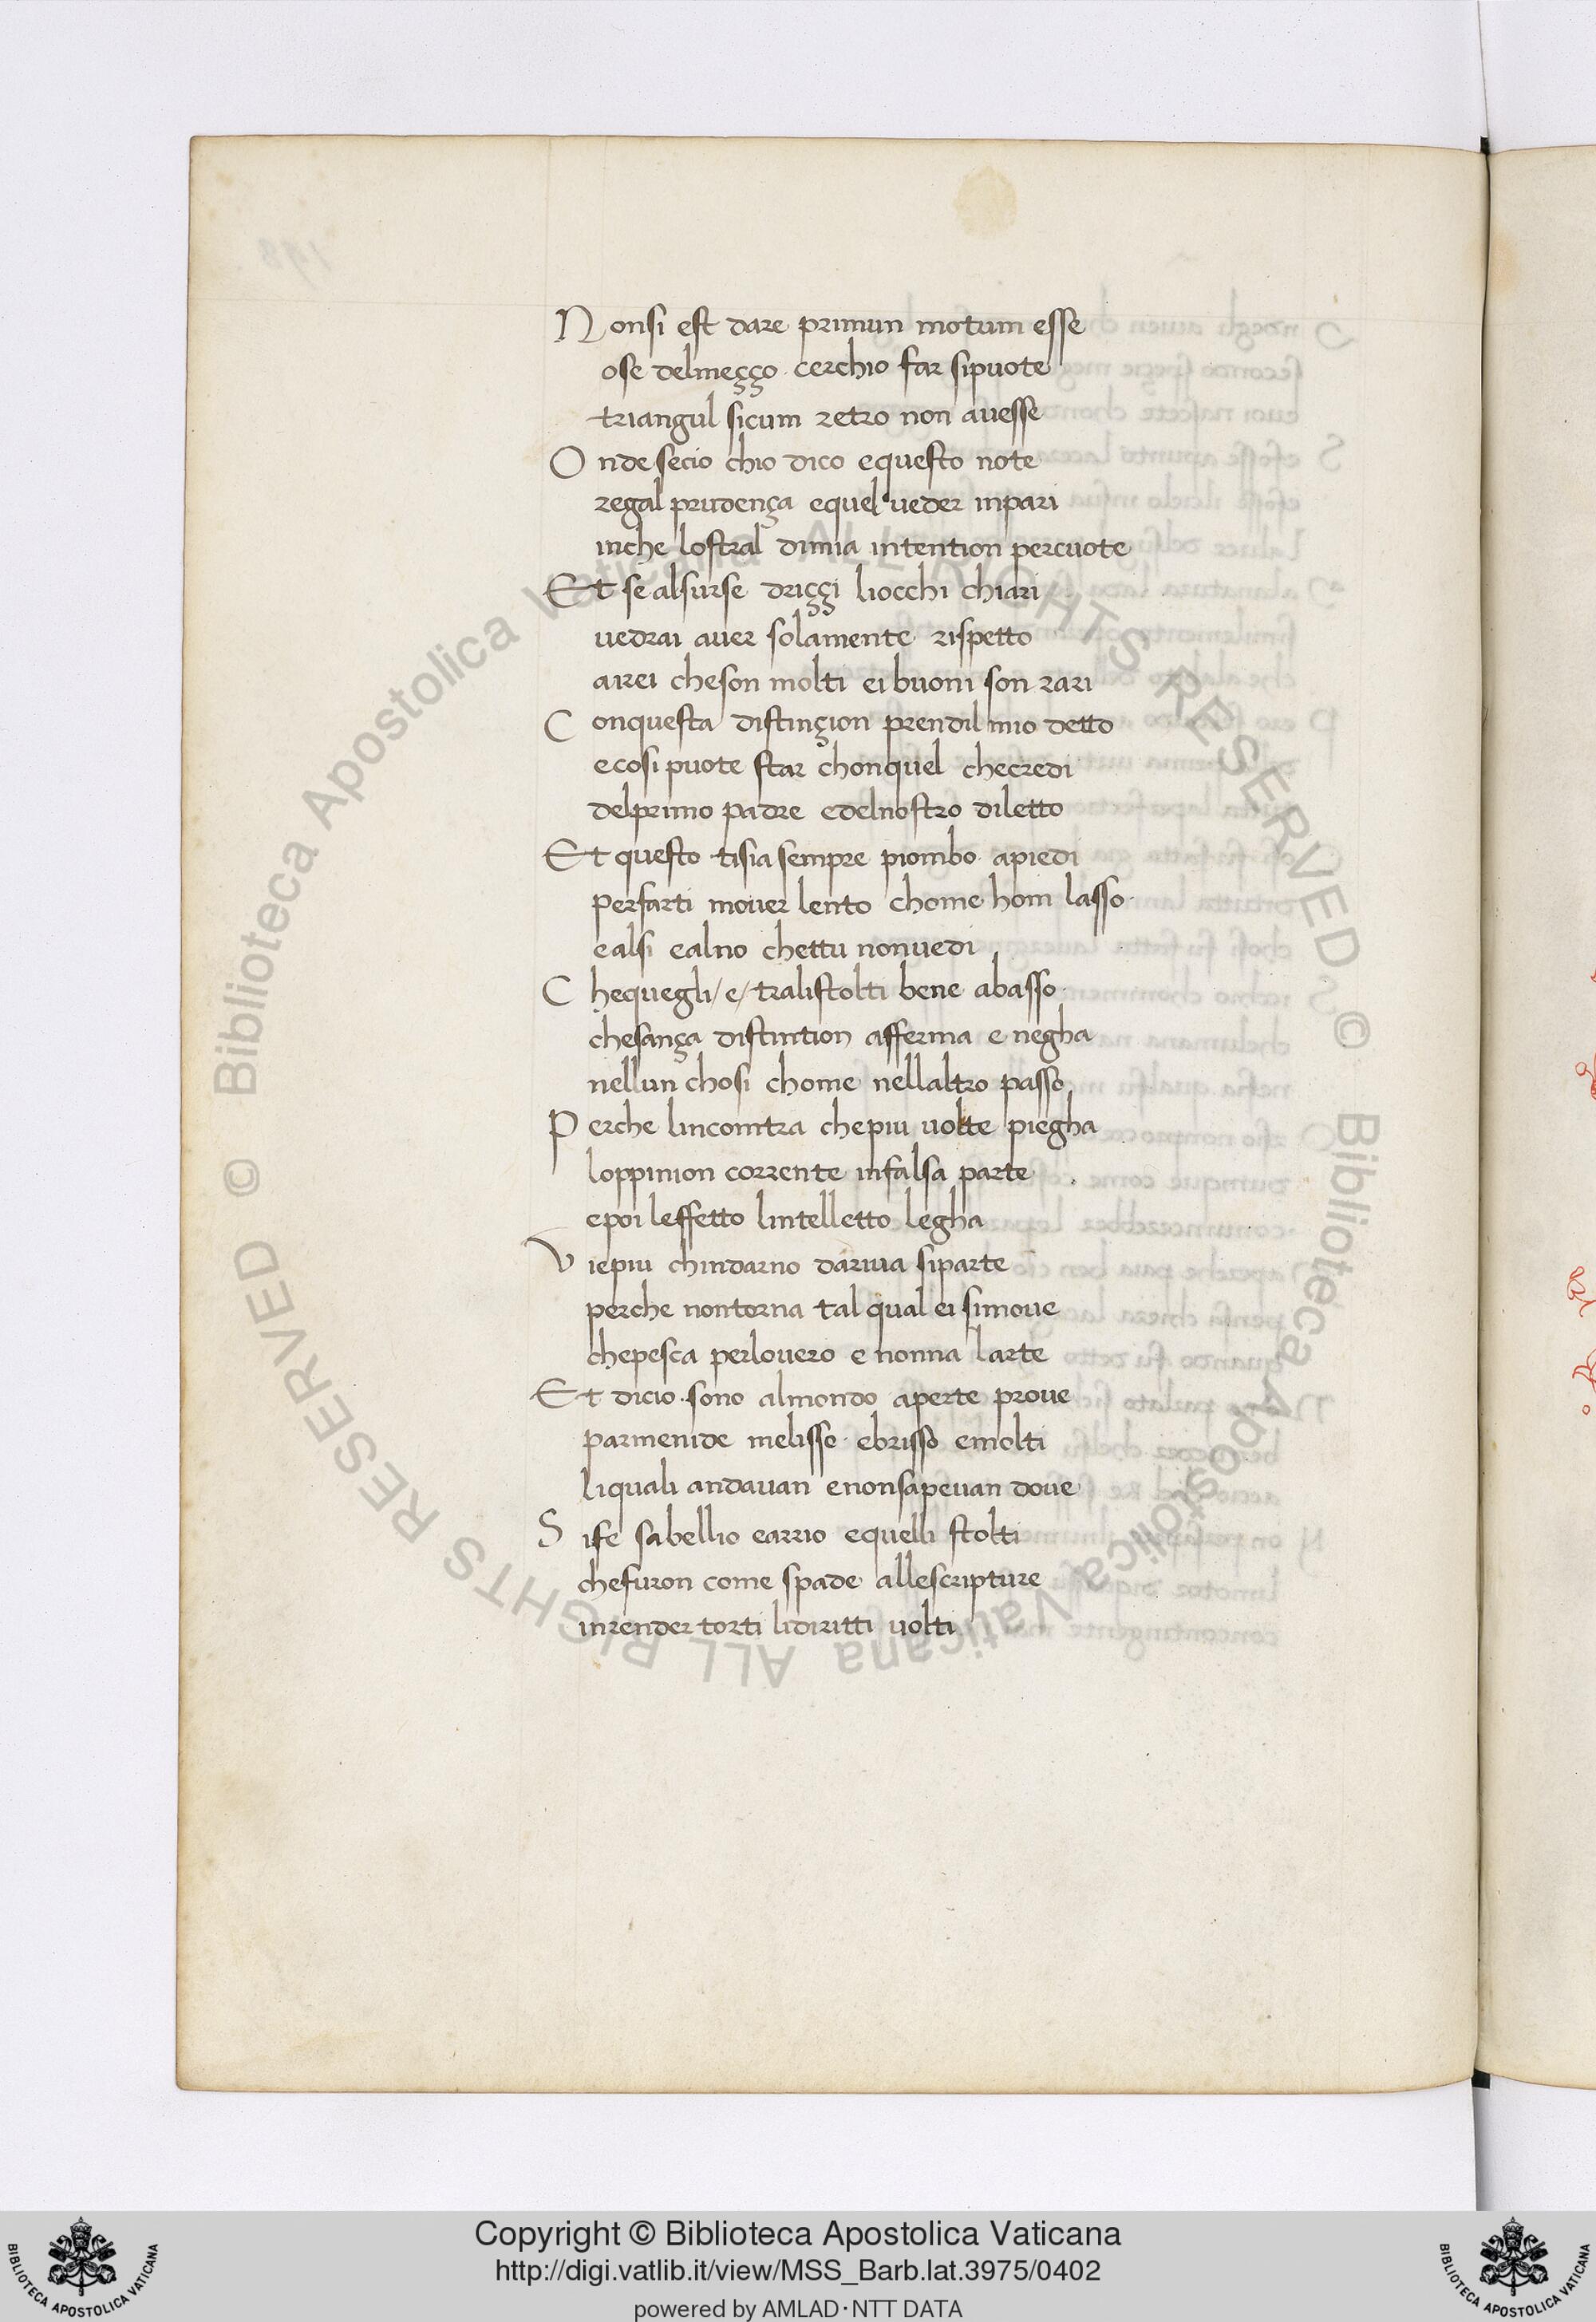 Nonsi est dare primun motum esse
ose delmeçço cerchio far sipuote
triangul sicum retro non auesse
Onde secio chio dico equesto note
regal prudença equel ueder inpari
inche lostral dimia intention percuote
Et se alsurse driççi liocchi chiari
uedrai auer solamente rispetto
airei cheson molti ei buoni son rari
Conquesta distinçion prendil mio detto
ecosi puote star chonquel checredi
delprimo padre edelnostro diletto
Et questo tisia sempre piombo apiedi
perfarti mouer lento chome hom lasso
ealsi ealno chettu nonuedi
Chequegli/e/tralistolti bene abasso
chesança distintion afferma e negha
nellun chosi chome nellaltro passo
Perche lincontra chepiu uolte piegha
loppinion corrente infalsa parte
epoi leffetto lintelletto legha
Viepiu chindarno dariua siparte
perche nontorna tal qual ei simoue
chepesca perlouero e nonna larte
Et dicio sono almondo aperte proue
parmenide melisso ebrisso emolti
liquali andauan enonsapeuan doue
Sife sabellio earrio equelli stolti
chefuron come spade allescripture
inrender torti lidiritti uolti
Copyright © Biblioteca Apostolica Vaticana
http://digi.vatlib.it/view/MSS_Barb.lat.3975/0402
powered by AMLAD·NTT DATA
BIBLIOTECA APOSTOLICA VATICANA
BIBLIOTECA APOSTOLICA VATICANA
© Biblioteca Apostolica Vaticana ALL RIGHTS RESERVED
© Biblioteca Apostolica Vaticana ALL RIGHTS RESERVED